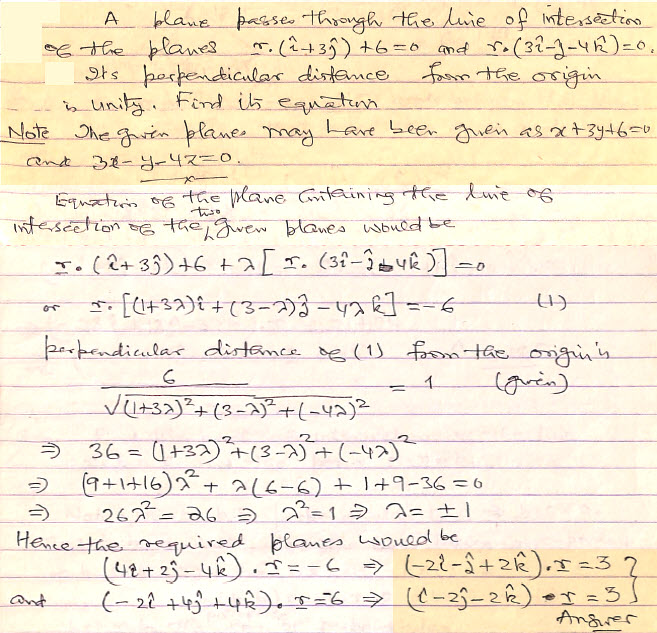 A plane passes through the line of intersection
of the planes r.(î+3ĵ)+6=0 and r.(3î-ĵ-4k̂)=0.
Its perpendicular distance from the origin
is unity. Find its equation
Note The given planes may have been given as x+3y+6=0
and 3x-y-4z=0.
x
Equation of the plane containing the line of
intersection of the two given planes would be
r.(î+3ĵ)+6+λ[r.(3î-ĵ-4k̂)]=0
or r.[(1+3λ)î+(3-λ)ĵ-4λk̂]=-6 (1)
perpendicular distance of (1) from the origin is
6/√(1+3λ)²+(3-λ)²+(-4λ)² = 1 (given)
⇒ 36=(1+3λ)²+(3-λ)²+(-4λ)²
⇒ (9+1+16)λ²+λ(6-6)+1+9-36=0
⇒ 26λ²=26 ⇒ λ²=1 ⇒ λ=±1
Hence the required planes would be
(4î+2ĵ-4k̂).r=-6 ⇒ (-2î-ĵ+2k̂).r=3
and (-2î+4ĵ+4k̂).r=-6 ⇒ (î-2ĵ-2k̂).r=3
Answer